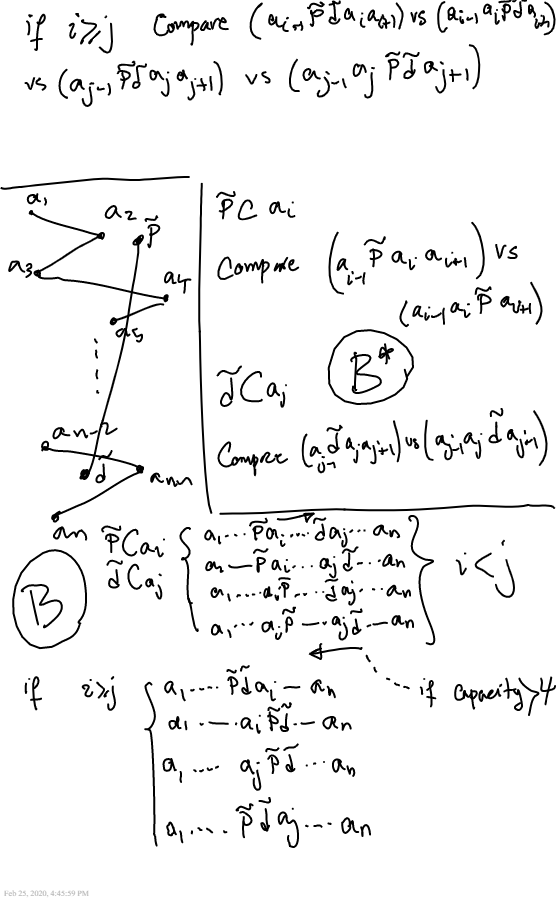 if i⩾j Compare (a_{i-1} p̃ d̃ a_i a_{i+1}) vs (a_{i-1} a_i p̃ d̃ a_{i+1})
vs (a_{j-1} p̃ d̃ a_j a_{j+1}) vs (a_{j-1} a_j p̃ d̃ a_{j+1})
a_1
a_2
p̃
a_3
a_4
a_5
a_{n-2}
d̃
a_{n-1}
a_n
p̃ C a_i
Compare (a_{i-1} p̃ a_i a_{i+1}) vs
(a_{i-1} a_i p̃ a_{i+1})
B*
d̃ C a_j
Compare (a_{j-1} d̃ a_j a_{j+1}) vs (a_{j-1} a_j d̃ a_{j+1})
B
p̃ C a_i
d̃ C a_j
a_1 ... p̃ a_i ... d̃ a_j ... a_n
a_1 — p̃ a_i ... a_j d̃ ... a_n
a_1 .... a_i p̃ ... d̃ a_j ... a_n
a_1 ... a_i p̃ — a_j d̃ — a_n
i<j
if i⩾j
a_1 .... p̃ d̃ a_i — a_n
a_1 .— . a_i p̃ d̃ — a_n
a_1 .... a_j p̃ d̃ ... a_n
a_1 .... p̃ d̃ a_j ... a_n
if capacity⩾4
Feb 25, 2020, 4:45:59 PM